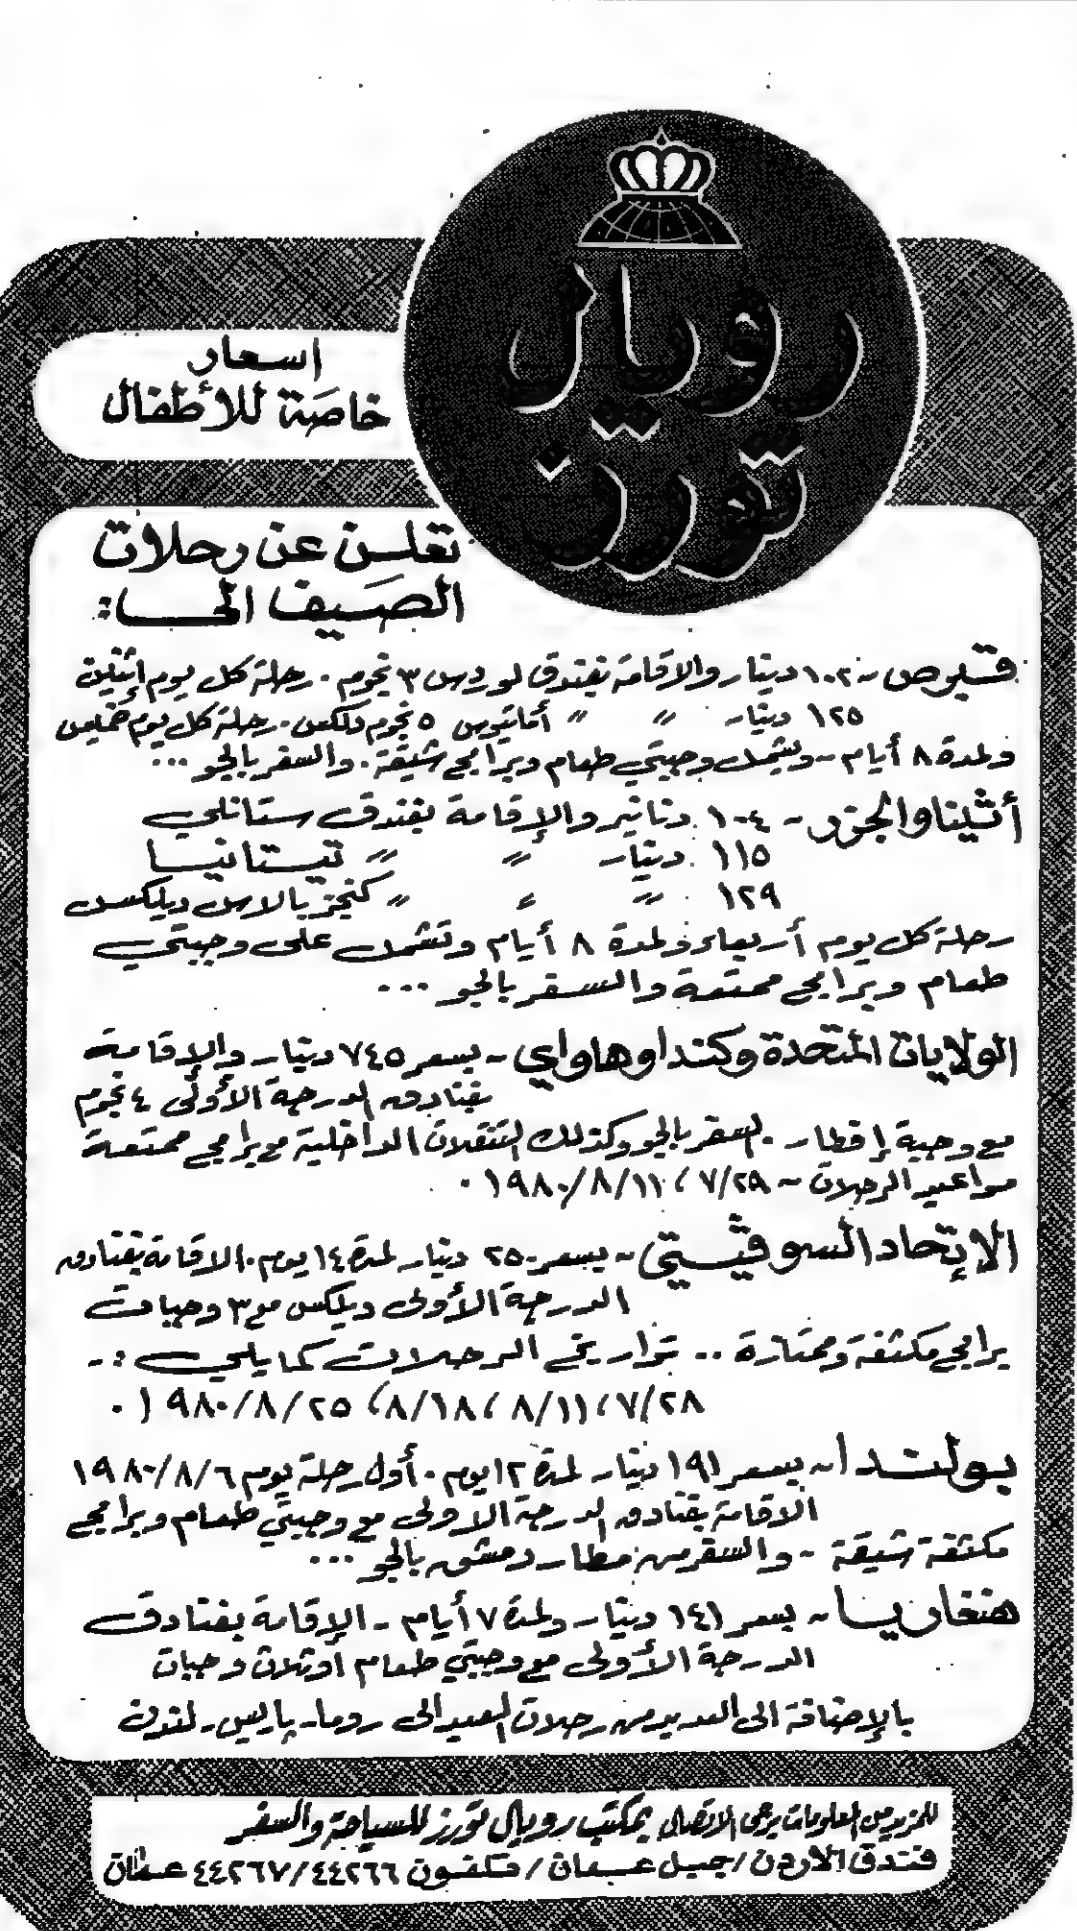 رويال
تورز
اسعار
خاصة للأطفال
تعلن عن رحلات
الصيف الى:
قبرص - ١٠٢ دينار والاقامة بفندق لوردس ٣ نجوم . رحلة كل يوم إثنين
١٢٥ دينار " " أماثيوس ٥ نجوم دلكس . رحلة كل يوم خميس
ولمدة ٨ أيام - ويشمل وجبتي طعام وبرامج شيقة . والسفر بالجو ...
أثينا والجزر - ١٠٤ دنانير والإقامة بفندق ستانلي
١١٥ دينار " " تيتانيا
١٢٩ " " " كنجز بالاس ديلكس
رحلة كل يوم أربعاء ولمدة ٨ أيام وتشمل على وجبتي
طعام وبرامج ممتعة والسفر بالجو ...
الولايات المتحدة وكندا وهاواي - بسعر ٧٤٥ دينار والإقامة
بفنادق الدرجة الأولى ٤ نجوم
مع وجبة إفطار . السفر بالجو وكذلك التنقلات الداخلية مع برامج ممتعة
مواعيد الرحلات - ٧/٢٩ ، ١٩٨٠/٨/١١ .
الإتحاد السوفيتي - بسعر ٢٥٠ دينار لمدة ١٤ يوم . الاقامة بفنادق
الدرجة الأولى ديلكس مع ٣ وجبات
برامج مكثفة وممتازة .. تواريخ الرحلات كما يلي :-
٧/٢٨ ، ٨/١١ ، ٨/١٨ ، ١٩٨٠/٨/٢٥ .
بولندا - بسعر ١٩١ دينار لمدة ١٢ يوم . أول رحلة يوم ١٩٨٠/٨/٦
الاقامة بفنادق الدرجة الاولى مع وجبتي طعام وبرامج
مكثفة شيقة - والسفر من مطار دمشق بالجو ...
هنغاريا - بسعر ١٤١ دينار ولمدة ٧ أيام - الإقامة بفنادق
الدرجة الأولى مع وجبتي طعام أو ثلاث وجبات
بالإضافة الى العديد من رحلات العيد الى روما - باريس - لندن
للمزيد من المعلومات يرجى الاتصال بمكتب رويال تورز للسياحة والسفر
فندق الأردن / جبل عمان / تلفون ٤٤٢٦٧/٤٤٢٦٦ عمان